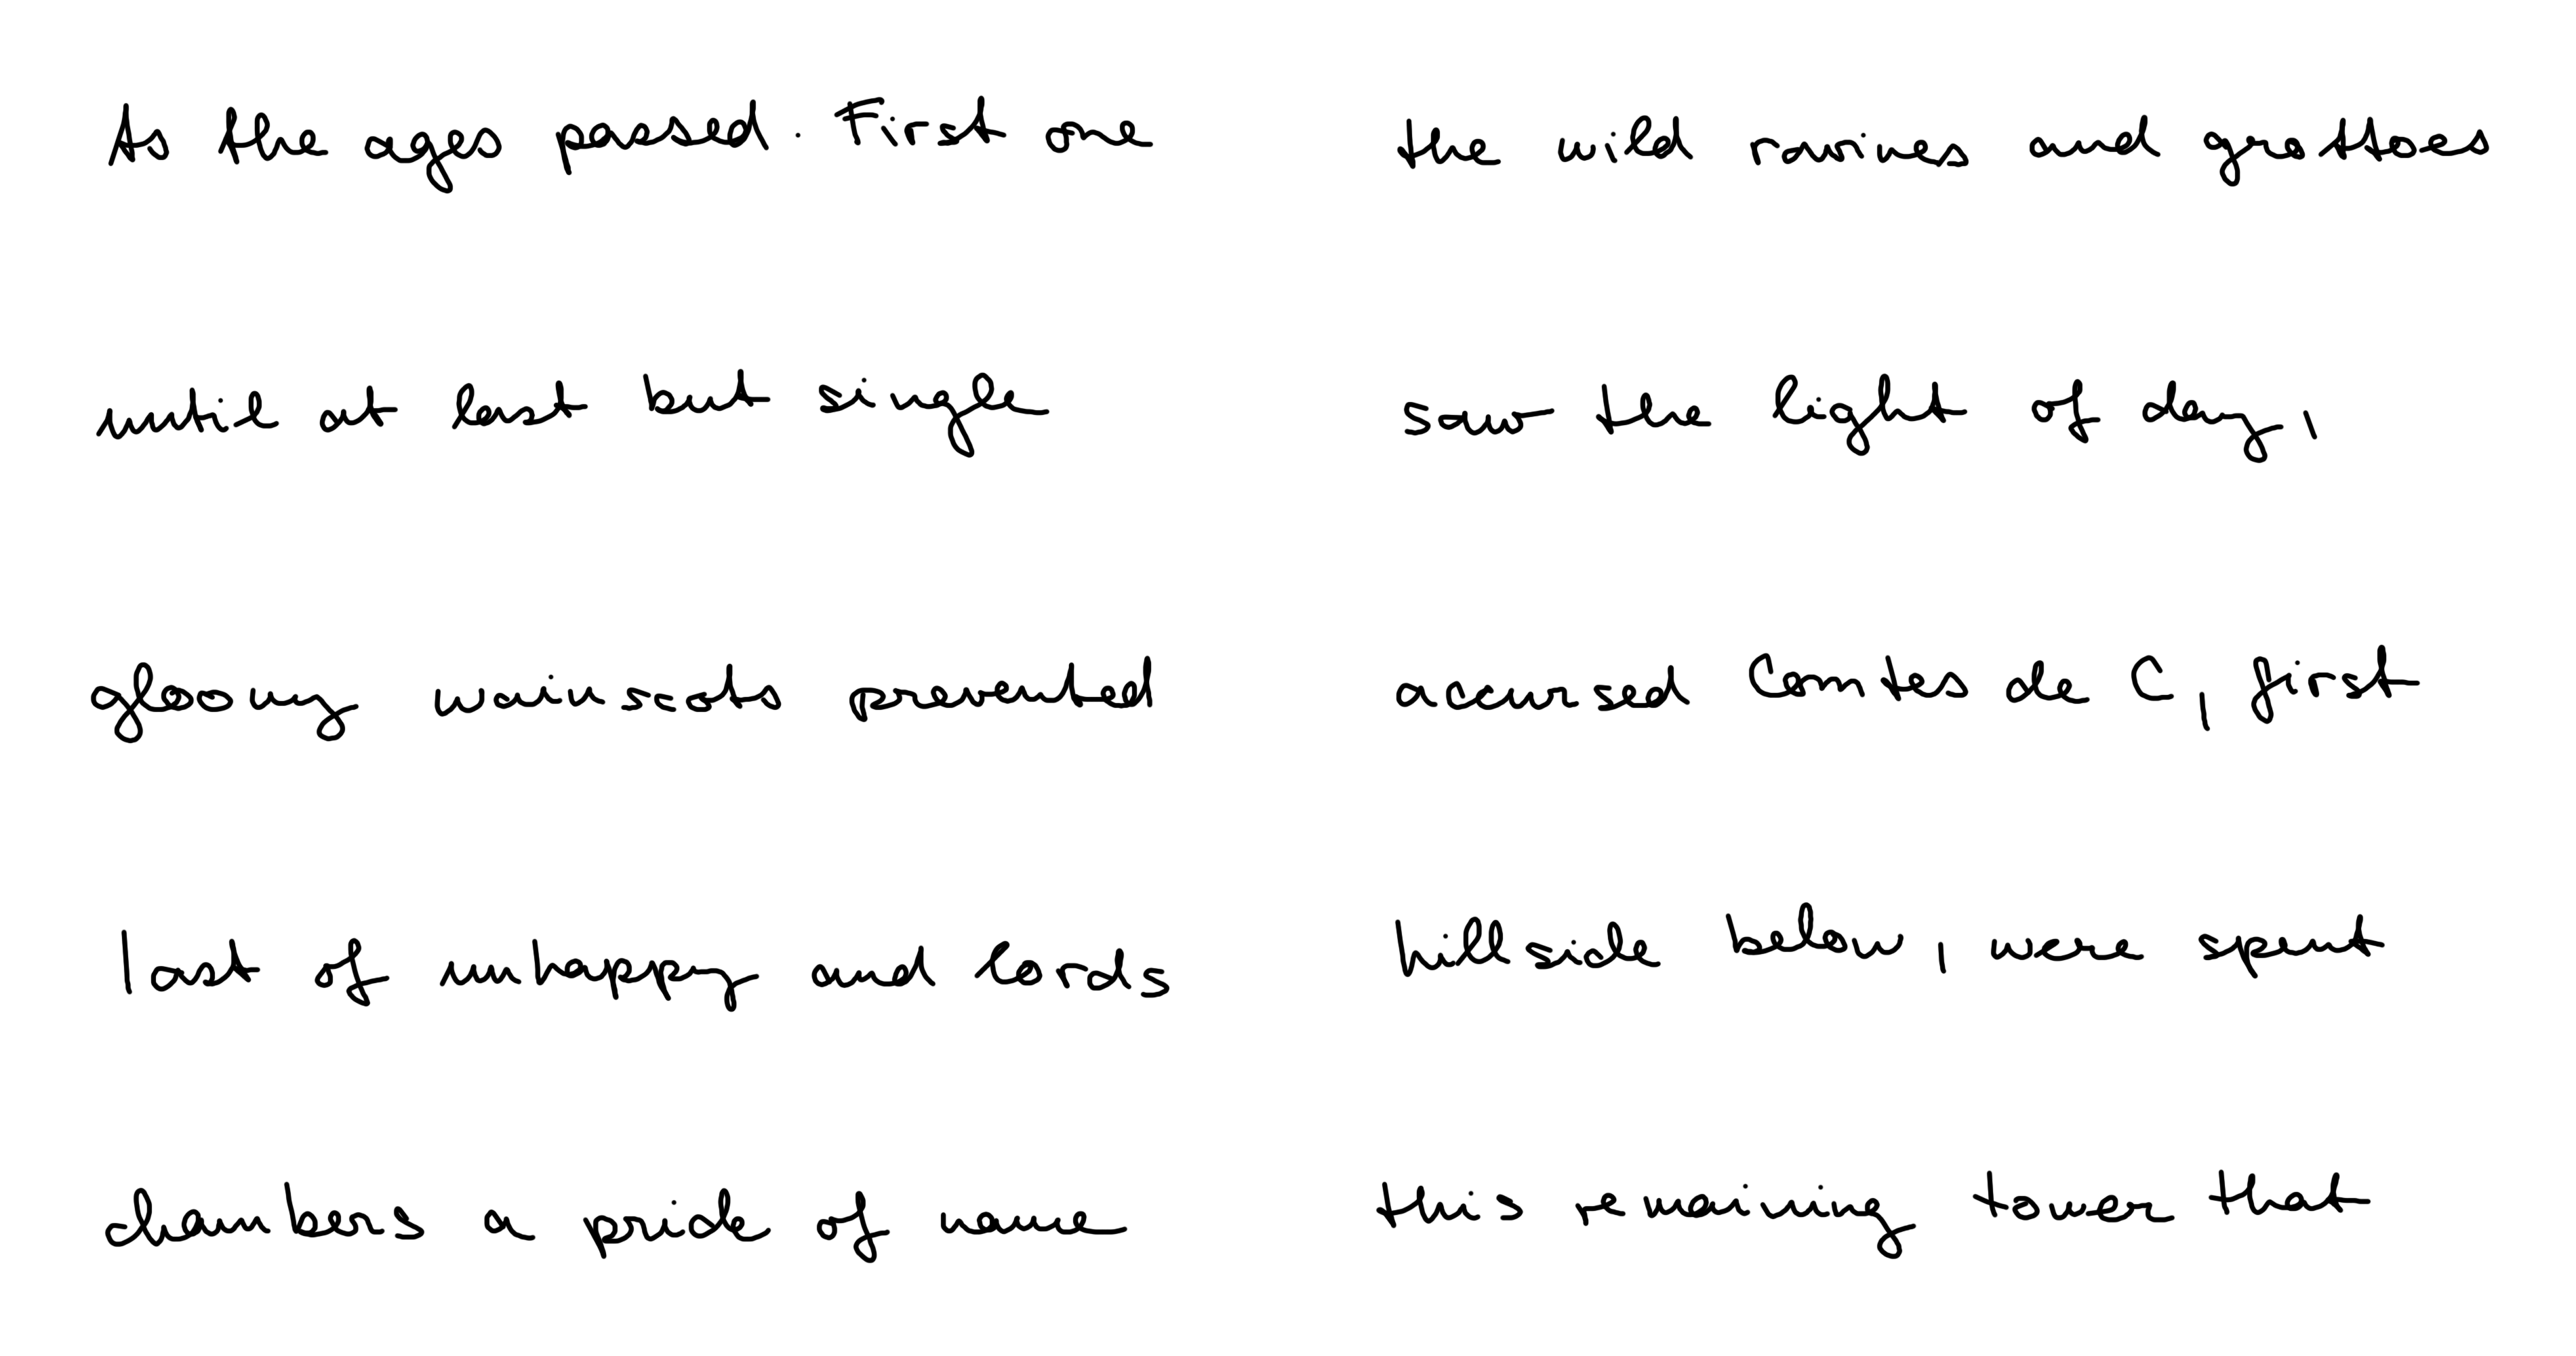 As the ages passed. First one
until at last but single
gloomy wainscots prevented
last of unhappy and lords
chambers a pride of name
the wild ravines and grottoes
saw the light of day,
accursed Comtes de C, first
hillside below, were spent
this remaining tower that